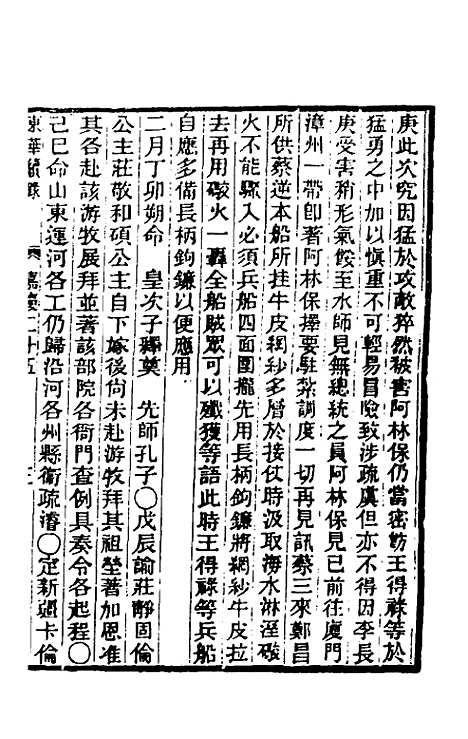 庚此次究因猛於攻敵猝然被害阿林保仍當密飭王得祿等於
猛勇之中加以愼重不可輕易冒險致涉疏虞但亦不得因李長
庚受害稍形氣餒至水師見無總統之員阿林保見已前往廈門
漳州一帶卽著阿林保擇要駐紮調度一切再見訊蔡三來鄭昌
所供蔡逆本船所挂牛皮網紗多層於接仗時汲取海水淋溼礮
火不能驟入必須兵船四面圍攏先用長柄鉤鐮將網紗牛皮拉
去再用礮火一轟全船賊眾可以殲獲等語此時王得祿等兵船
自應多備長柄鉤鐮以便應用
二月丁卯朔命　皇次子釋奠　先師孔子〇戊辰諭莊靜固倫
公主莊敬和碩公主自下嫁後尙未赴游牧拜其祖塋著加恩准
其各赴該游牧展拜並著該部院各衙門查例具奏令各起程〇
己巳命山東運河各工仍歸沿河各州縣衞疏濬〇定新疆卡倫
東華續錄　嘉慶二十五　三